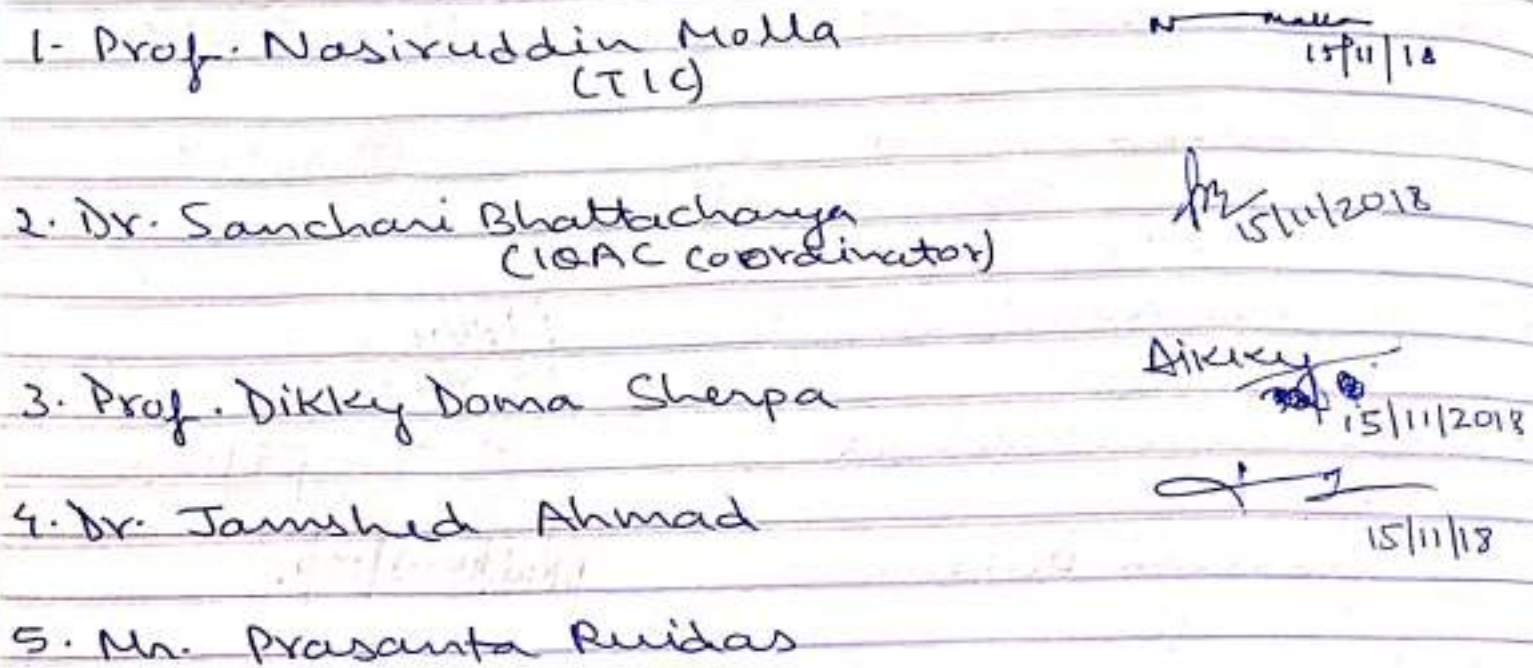 1- Prof. Nasiruddin Molla
N Molla
15/11/18
(TIC)
2. Dr. Sanchari Bhattacharya
15/11/2018
(IQAC Coordinator)
3. Prof. Dikky Doma Sherpa
Dikky
15/11/2018
4. Dr. Jamshed Ahmad
15/11/18
5. Mr. Prasanta Ruidas